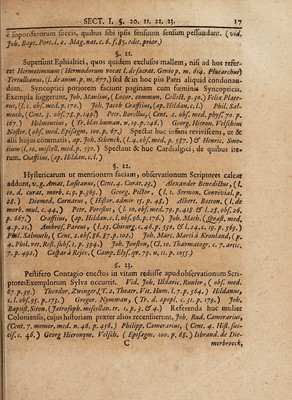 SECT. I. §. 20. 11. 22. 23. 17
è soporiferorum succis, quibus sibi ipsis sensuum sensum pessundant. (vid.
Joh. Bapt. Port. l. 2. Mag. nat. c. 6. f. 85. edit. prior.)
§. 21.
Supersunt Ephialtici, quos quidem exclusos mallem, nisi ad hos refer-
ret Hermotimum (Hermodorum vocat l. de socrat. Genio p. m. 614. Plutarchus)
Tertullianus, (l. de anim. p. m. 677.) sed & hoc pio Patri aliquid condonan-
dum. Syncoptici potiorem faciunt paginam cum feminis Syncopticis.
Exempla suggerunt, Joh. Manlius, (Locor. commun. Collect. p. 50.) Felix Plate-
rus, (l. 1. obs. med. p. 170.) Joh. Jacob Crafftius, (ap. Hildan. c. l.) Phil. Sal-
muth, (Cent. 3. obs. 72. p. 149.) Petr. Borellus, (Cent. 2. obs. med. phys. 70. p.
167.) Helmontius, (Tr. Ideæ human. n. 19. p. 246.) Georg. Hieron. Velschius
Noster. (obs. med. Episagm. 100. p. 67.) Spectat huc infans reviviscens, ut &
alii hujus communis, ap. Joh. Schenck. (l. 4. obs. med. p. 557.) & Henric. Sme-
tium (l. 10. miscell. med. p. 550.) Spectant & huc Cardialgici, de quibus ite-
rum. Crafftius, (ap. Hildan. c. l.)
§. 22.
Hystericarum ut mentionem faciam, observationum Scriptores calcar
addunt, e. g. Amat. Lusitanus, (Cent. 4. Curat. 23.) Alexander Benedictus, (l.
10. d. curat. morb. c. 9. p. 365.) Georg. Pictor, (l. 1. Sermon. Convivial. p.
28.) Diomed. Cornarus, (Histor. admir. 15. p. 48.) Albert. Botton, (l. de
morb. mul. c. 44.) Petr. Forestus, (l. 10. obs. med. 79. p. 418. & l. 28. obs. 26.
p. 667.) Crafftius, (ap. Hildan. c. l. obs. 96. p. 176.) Joh. Math. (Quæst. med.
4. p. 21.) Ambros. Pareus, (l. 23. Chirurg. c. 46. p. 530. & l. 24. c. 15. p. 569.)
Phil. Salmuth, (Cent. 2. obs. 86. 87. p. 102.) Joh. Marc. Marci à Kronland. (p.
4. Phil. vet. Rest. subs. 2. p. 394.) Joh. Jonston, (Cl. 10. Thaumatogr. c. 7. artic.
7. p. 492.) Caspar à Rejes. (Camp. Elys. qv. 79. n. 11. p. 1055.)
§. 23.
Pestifero Contagio enectos in vitam rediisse apud observationum Scri-
ptores Exemplorum Sylva occurrit. Vid. Joh. Udaric. Rumler, (obs. med.
67. p. 39.) Theodor. Zwinger, (T. 2. Theatr. Vit. Hum. l. 7. p. 564.) Hildanus,
c. l. obs. 95. p. 175.) Gregor. Nymman, (Tr. d. apopl. c. 31. p. 179.) Joh.
Baptist. Siton. (Iatrosoph. miscellan. tr. 1. p. 3. & 4.) Referenda huc mulier
Coloniensis, cujus historiam præter alios recensuerunt, Joh. Rud. Camerarius,
(Cent. 7. memor. med. n. 46. p. 456.) Philipp. Camerarius, (Cent. 4. Hist. suc-
cis. c. 46.) Georg Hieronym. Velsch. (Episagm. 100. p. 65.) Isbrand. de Die-
C merbroeck,